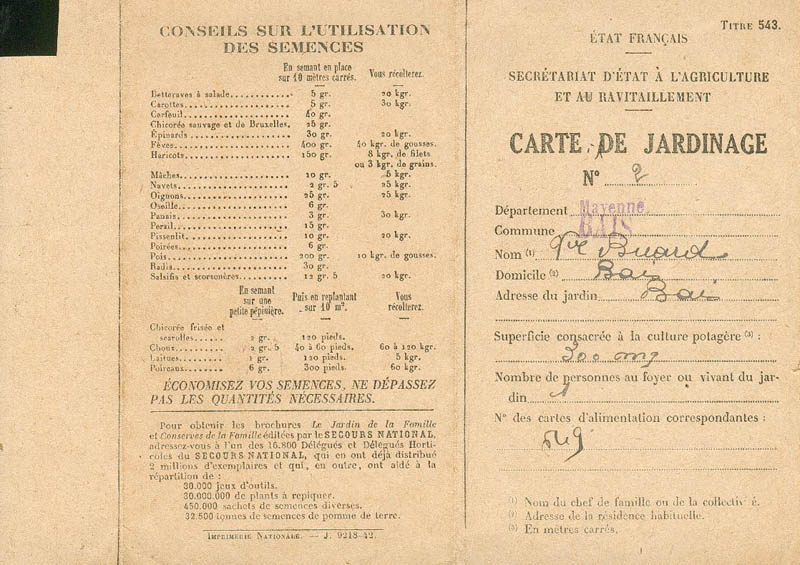 CONSEILS SUR L'UTILISATION
DES SEMENCES
En semant en place sur 10 mètres carrés. Vous récolterez.
Betteraves à salade 5 gr. 20 kgr.
Carottes 5 gr. 30 kgr.
Cerfeuil 40 gr.
Chicorée sauvage et de Bruxelles. 25 gr.
Épinards 30 gr. 20 kgr.
Fèves 400 gr. 40 kgr. de gousses.
Haricots 150 gr. 8 kgr. de filets
ou 3 kgr. de grains.
Mâches 10 gr. 5 kgr.
Navets 2 gr. 5 25 kgr.
Oignons 25 gr. 25 kgr.
Oseille 6 gr.
Panais 3 gr. 30 kgr.
Persil 15 gr.
Pissenlit 10 gr. 20 kgr.
Poirées 6 gr.
Pois 200 gr. 10 kgr. de gousses.
Radis 30 gr.
Salsifis et scorsonères 12 gr. 5 20 kgr.
En semant sur une petite pépinière. Puis en replantant sur 10 m². Vous récolterez
Chicorée frisée et
scarolles 2 gr. 120 pieds.
Choux 2 gr. 5 40 à 60 pieds. 60 à 120 kgr.
Laitues 1 gr. 120 pieds. 5 kgr.
Poireaux 6 gr. 300 pieds. 60 kgr.
ÉCONOMISEZ VOS SEMENCES, NE DÉPASSEZ
PAS LES QUANTITÉS NÉCESSAIRES.
Pour obtenir les brochures Le Jardin de la Famille
et Conserves de la Famille éditées par le SECOURS NATIONAL,
adressez-vous à l'un des 15.800 Délégués et Délégués Horti-
coles du SECOURS NATIONAL, qui en ont déjà distribué
2 millions d'exemplaires et qui, en outre, ont aidé à la
répartition de :
30.000 jeux d'outils.
30.000.000 de plants à repiquer.
450.000 sachets de semences diverses.
32.500 tonnes de semences de pomme de terre.
IMPRIMERIE NATIONALE. — J. 9218-42.
TITRE 543.
ÉTAT FRANÇAIS
SECRÉTARIAT D'ÉTAT À L'AGRICULTURE
ET AU RAVITAILLEMENT
CARTE DE JARDINAGE
N° 2
Département Mayenne
Commune BAIS
Nom (1) Vve Buard
Domicile (2) Bais
Adresse du jardin Bais
Superficie consacrée à la culture potagère (3) :
300 mq
Nombre de personnes au foyer ou vivant du jar-
din 1
N° des cartes d'alimentation correspondantes :
(1) Nom du chef de famille ou de la collectivé.
(2) Adresse de la résidence habituelle.
(3) En mètres carrés.